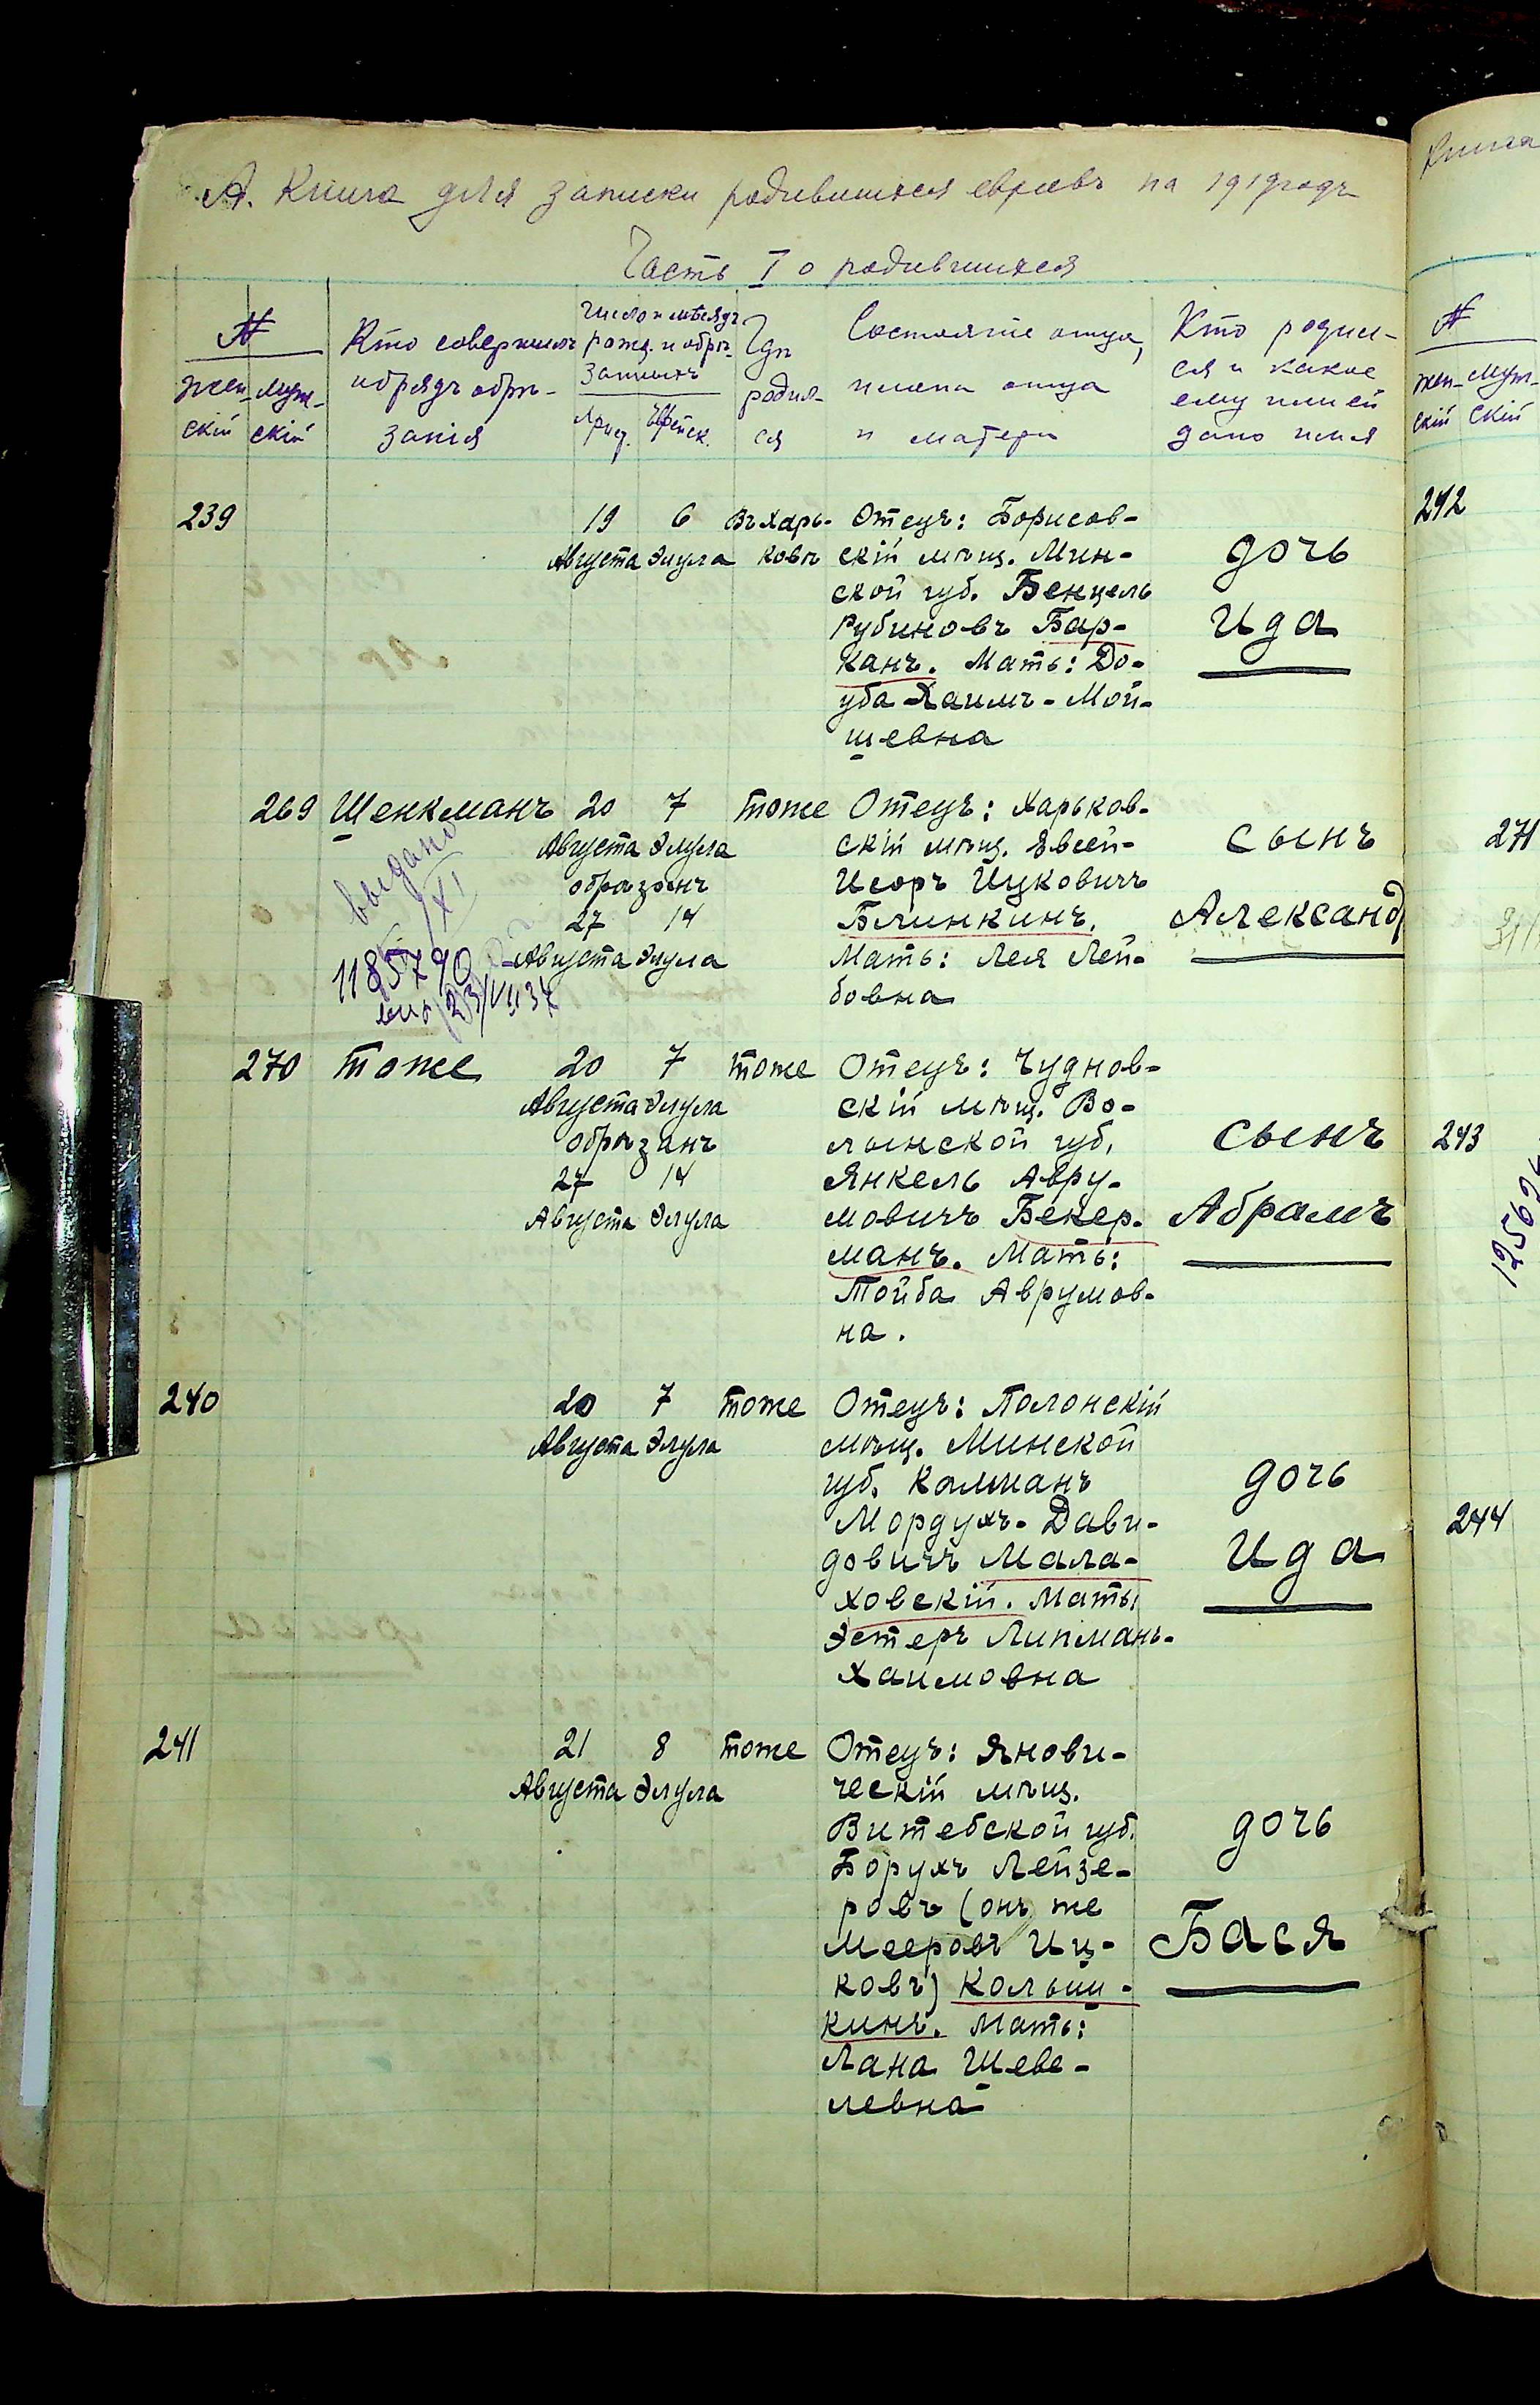 А. Книга для записки родившихся евреевъ на 1919 годъ
Часть I о родившихся
№
жен- муж-
скій скій
Кто совершилъ
обрядъ обрѣ-
занія
Число и мѣсяцъ
рожд. и обрѣ-
занія
Христ. Еврейск.
Гдѣ
родил-
ся
Состояніе отца,
имена отца
и матери
Кто родил-
ся и какое
ему или ей
дано имя
239
19 6
Августа Элула
Въ Харь-
ковѣ
Отецъ: Борисов-
скій мѣщ. Мин-
ской губ. Бенцель
Рубиновъ Бар-
канъ. Мать: До-
уба-Хаимъ-Мой-
шевна
дочь
Ида
269 Шенкманъ
20 7
Августа Элула
обрѣзанъ
27 14
Августа Элула
тоже
Отецъ: Харьков-
скій мѣщ. Евсей-
Исоръ Ицковичъ
Блинкинъ.
Мать: Лея Лей-
бовна
сынъ
Александ
выдано
XI
1185790
23/VII 37
270 тоже
20 7
Августа Элула
обрѣзанъ
27 14
Августа Элула
тоже
Отецъ: Чуднов-
скій мѣщ. Во-
лынской губ.
Янкель Авру-
мовичъ Бекер-
манъ. Мать:
Тойба Аврумов-
на.
сынъ
Абрамъ
240
20 7
Августа Элула
тоже
Отецъ: Полонскій
мѣщ. Минской
губ. Калманъ
Мордухъ-Дави-
довичъ Мала-
ховскій. Мать:
Эстеръ Липманъ-
Хаимовна
дочь
Ида
241
21 8
Августа Элула
тоже
Отецъ: Янови-
ческій мѣщ.
Витебской губ.
Борухъ Лейзе-
ровъ (онъ же
Мееровъ Иц-
ковъ) Колыш-
кинъ. Мать:
Лана Шеве-
левна
дочь
Бася
Книга
№
жен- муж-
скій скій
242
271
311
243
244